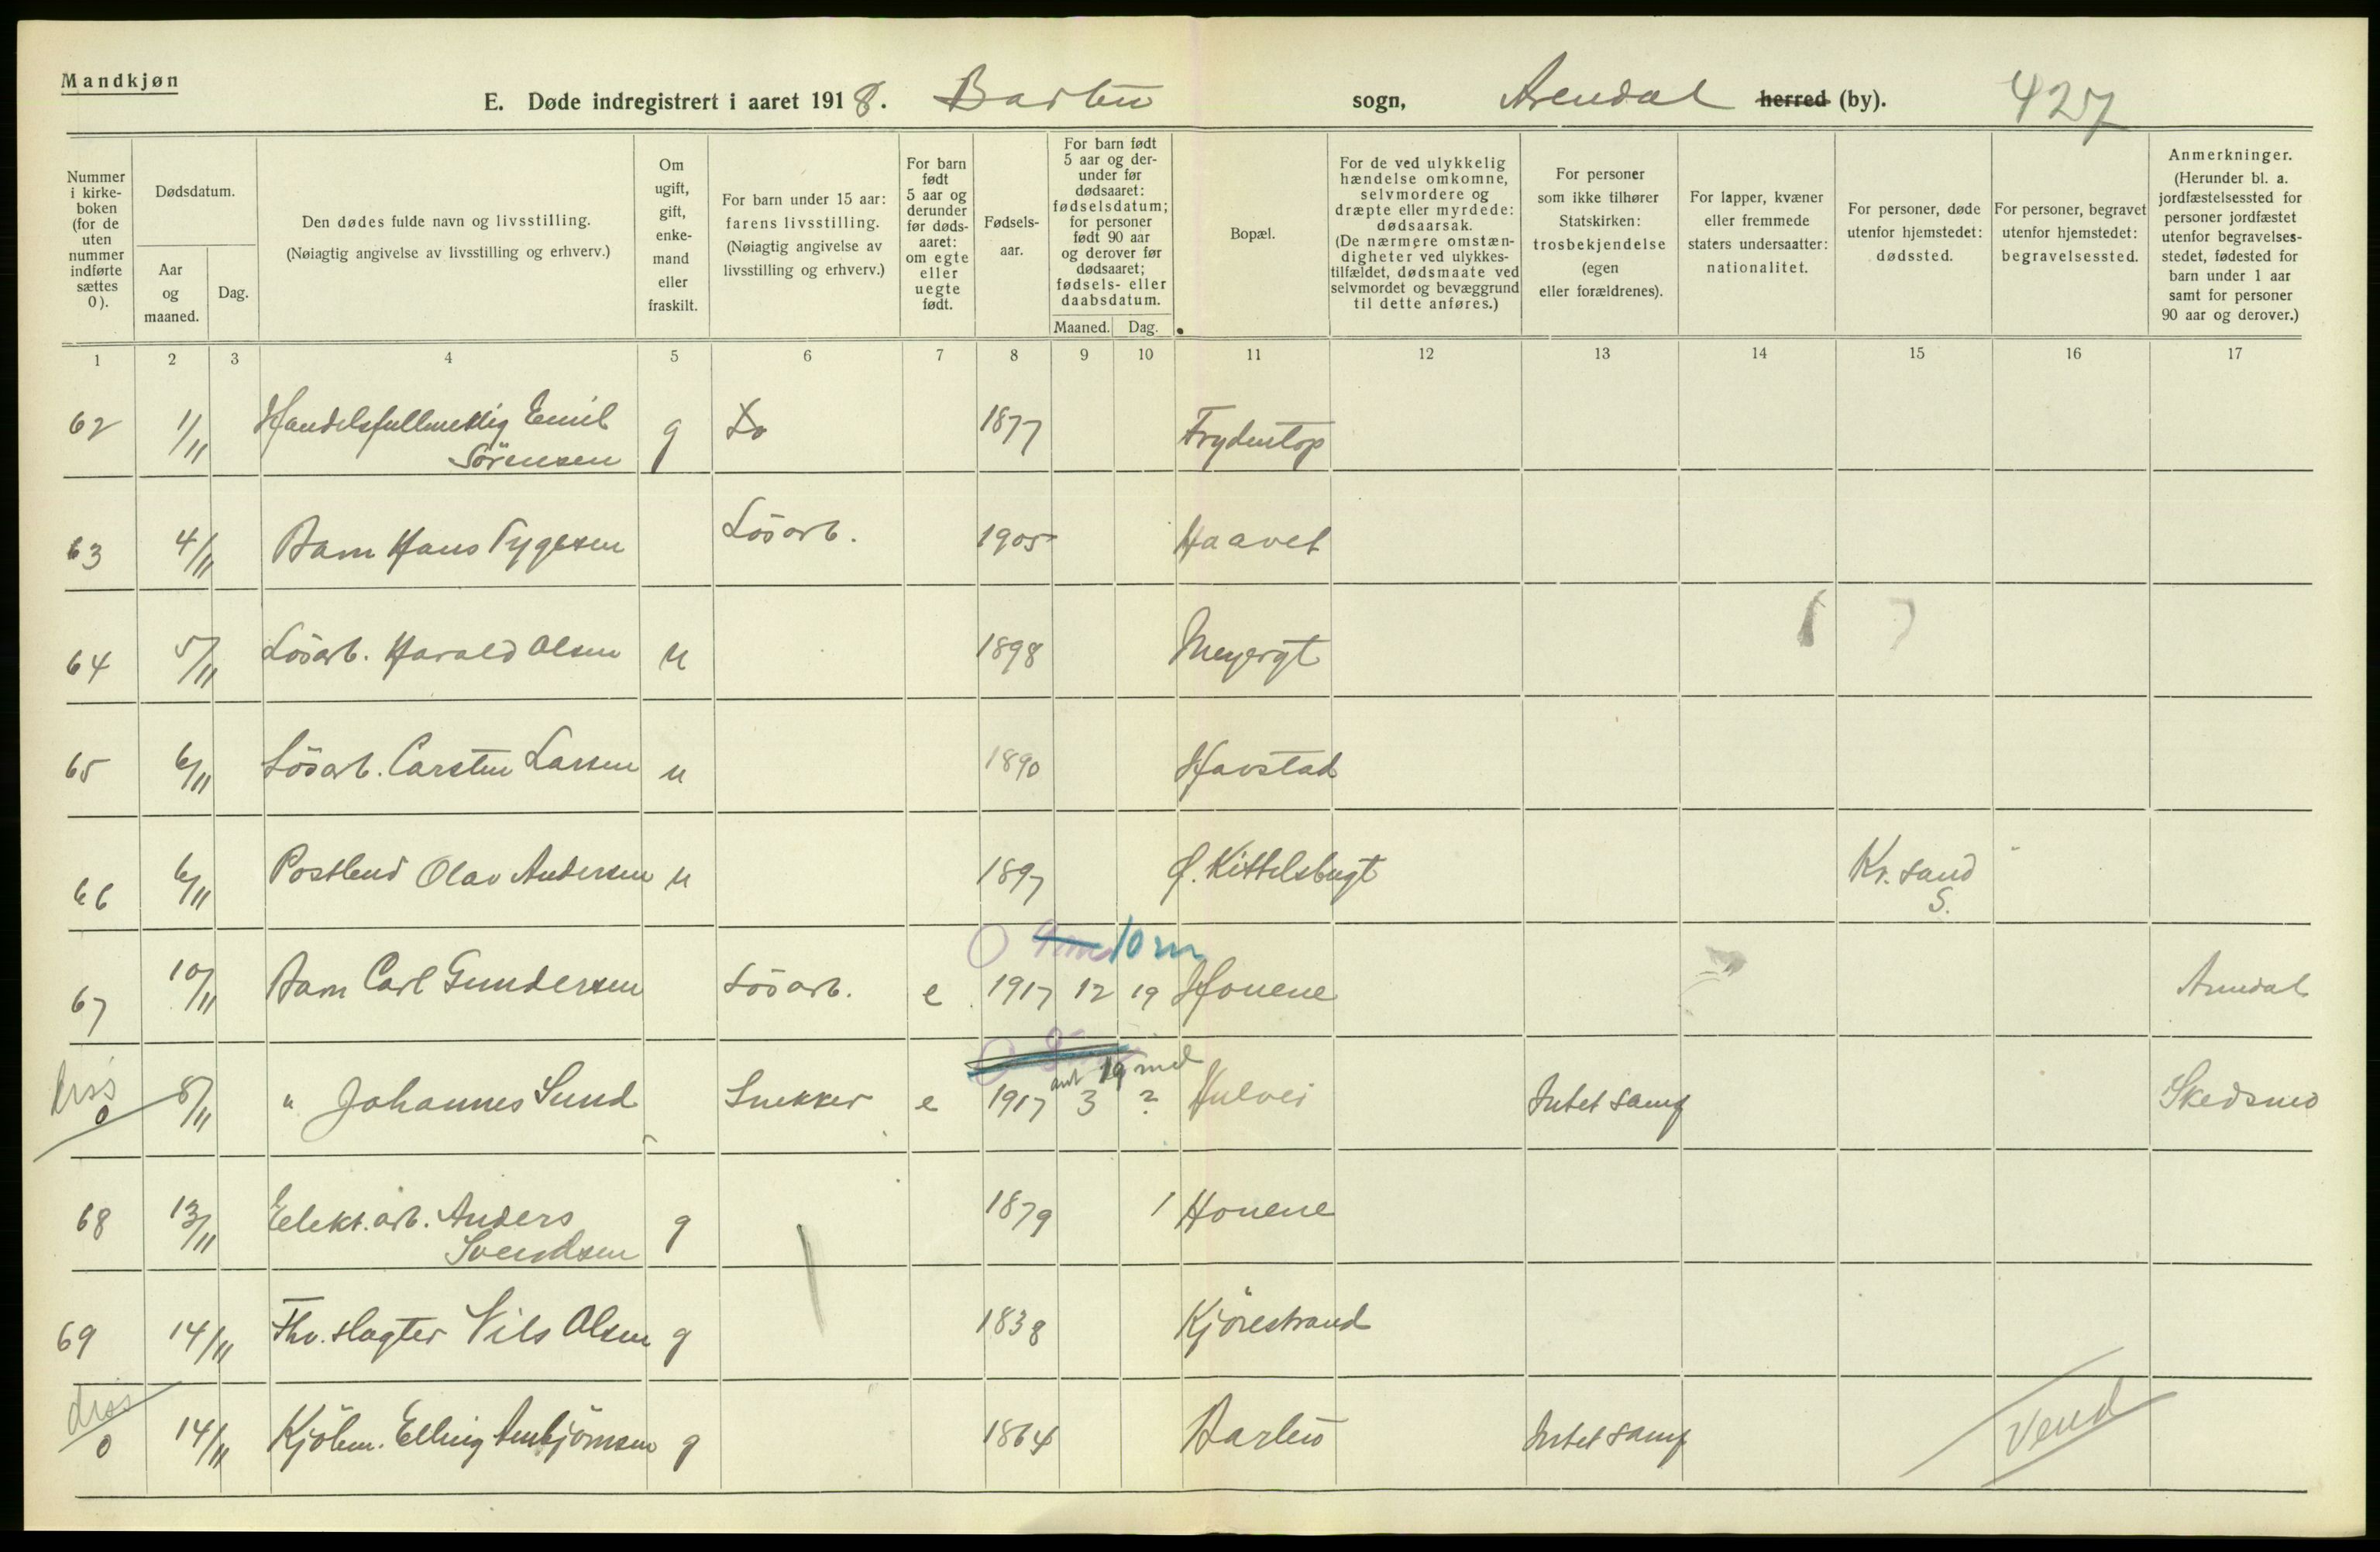 Mandkjøn
E. Døde indregistrert i aaret 1918. Barbu sogn, Arendal herred (by). 427
Nummer i kirke-boken (for de uten nummer indførte sættes 0).
Dødsdatum.
Aar og maaned.
Dag.
Den dødes fulde navn og livsstilling.
(Nøiagtig angivelse av livsstilling og erhverv.)
Om ugift, gift, enke-mand eller fraskilt.
For barn under 15 aar: farens livsstilling.
(Nøiagtig angivelse av livsstilling og erhverv.)
For barn født 5 aar og derunder før døds-aaret: om egte eller uegte født.
Fødsels-aar.
For barn født 5 aar og der-under før dødsaaret: fødselsdatum; for personer født 90 aar og derover før dødsaaret; fødsels- eller daabsdatum.
Maaned. Dag.
Bopæl.
For de ved ulykkelig hændelse omkomne, selvmordere og dræpte eller myrdede: dødsaarsak.
(De nærmere omstæn-digheter ved ulykkes-tilfældet, dødsmaate ved selvmordet og bevæggrund til dette anføres.)
For personer som ikke tilhører Statskirken: trosbekjendelse (egen eller forældrenes).
For lapper, kvæner eller fremmede staters undersaatter: nationalitet.
For personer, døde utenfor hjemstedet: dødssted.
For personer, begravet utenfor hjemstedet: begravelsessted.
Anmerkninger.
(Herunder bl. a. jordfæstelsessted for personer jordfæstet utenfor begravelses-stedet, fødested for barn under 1 aar samt for personer 90 aar og derover.)
1 2 3 4 5 6 7 8 9 10 11 12 13 14 15 16 17
62 1/11 Handelsfullmektig Emil g 1877 Frydentop
Sörensen
63 4/11 Barn Hans Tygesen Lösarb. 1905 Haavet
64 5/11 Lösarb. Harald Olsen u 1898 Meyergt
65 6/11 Lösarb. Carsten Larsen u 1890 Havstad
66 6/11 Postbud Olav Andersen u 1897 Ø. Kittelsbugt Kr. sand
S.
0 10 m
67 10/11 Barn Carl Gundersen Lösarb. e 1917 12 19 Honene Arendal
19 md
diss 0 8/11 " Johannes Lund Snekker e 1917 3 ? Hulvei Intet samf Skedsmo
68 13/11 Elekt. arb. Anders g 1879 1 Honene
Svendsen
69 14/11 Fhv. slagter Nils Olsen g 1838 Kjörestrand
diss 0 14/11 Kjöbm. Elling Arnbjörnsen g 1864 Barbu Intet samf
Vend